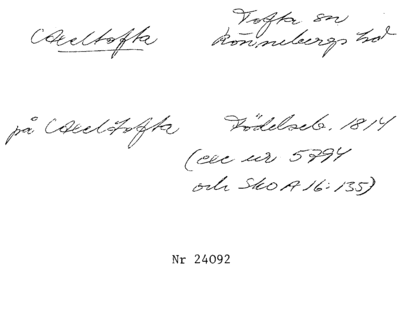 Axeltofta Tofta sn
Rönnebergs hd
på Axeltofta Födelseb. 1814
(acc nr 5794
och Sko A 16:135)
Nr 24092